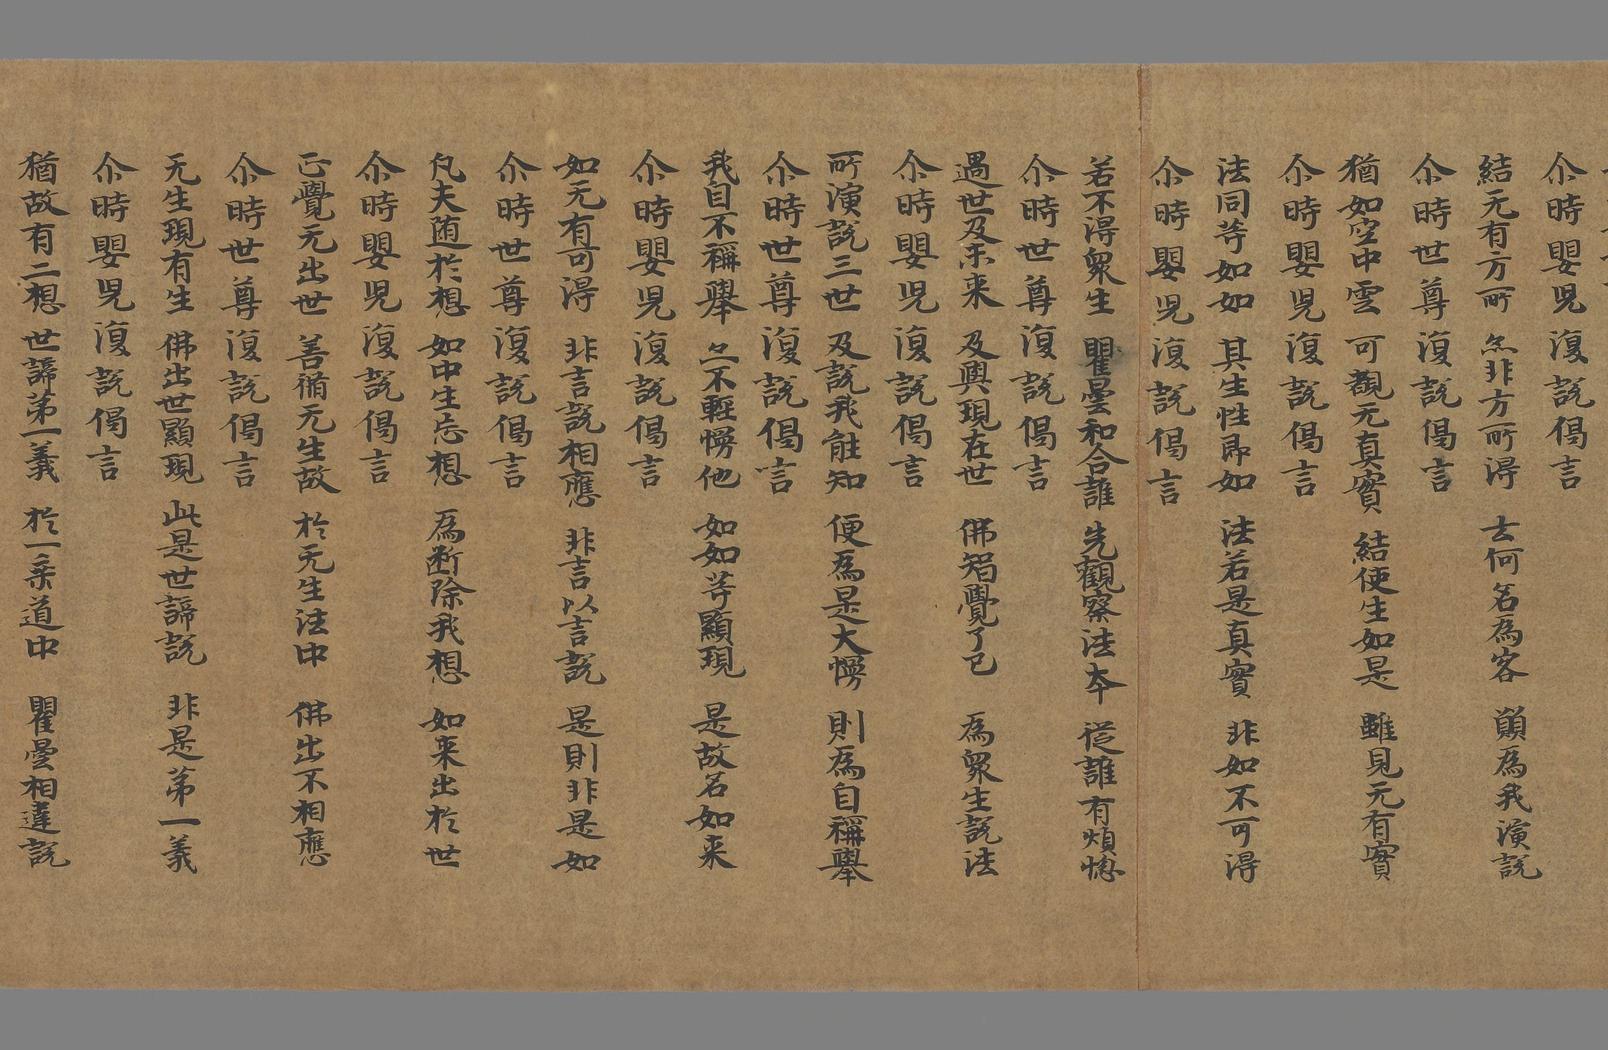 尒時嬰児復說偈言
結无有方所 亦非方所得 云何名為客 願為我演說
尒時世尊復說偈言
猶如空中雲 可觀无真實 結使生如是 雖見无有實
尒時嬰児復說偈言
法同等如如 其生性即如 法若是真實 非如不可得
尒時嬰児復說偈言
若不得衆生 瞿曇和合誰 先觀察法本 從誰有煩惱
尒時世尊復說偈言
過世及未来 及與現在世 佛智覺了已 為衆生說法
尒時嬰児復說偈言
所演說三世 及說我能知 便為是大慢 則為自稱舉
尒時世尊復說偈言
我自不稱舉 亦不輕慢他 如如等顯現 是故名如来
尒時嬰児復說偈言
如无有可得 非言說相應 非言以言說 是則非是如
尒時世尊復說偈言
凡夫随於想 如中生忘想 為断除我想 如来出於世
尒時嬰児復說偈言
正覺无出世 善脩无生故 於无生法中 佛出不相應
尒時世尊復說偈言
无生現有生 佛出世顯現 此是世諦說 非是第一義
尒時嬰児復說偈言
猶故有二想 世諦第一義 於一乗道中 瞿曇相違說